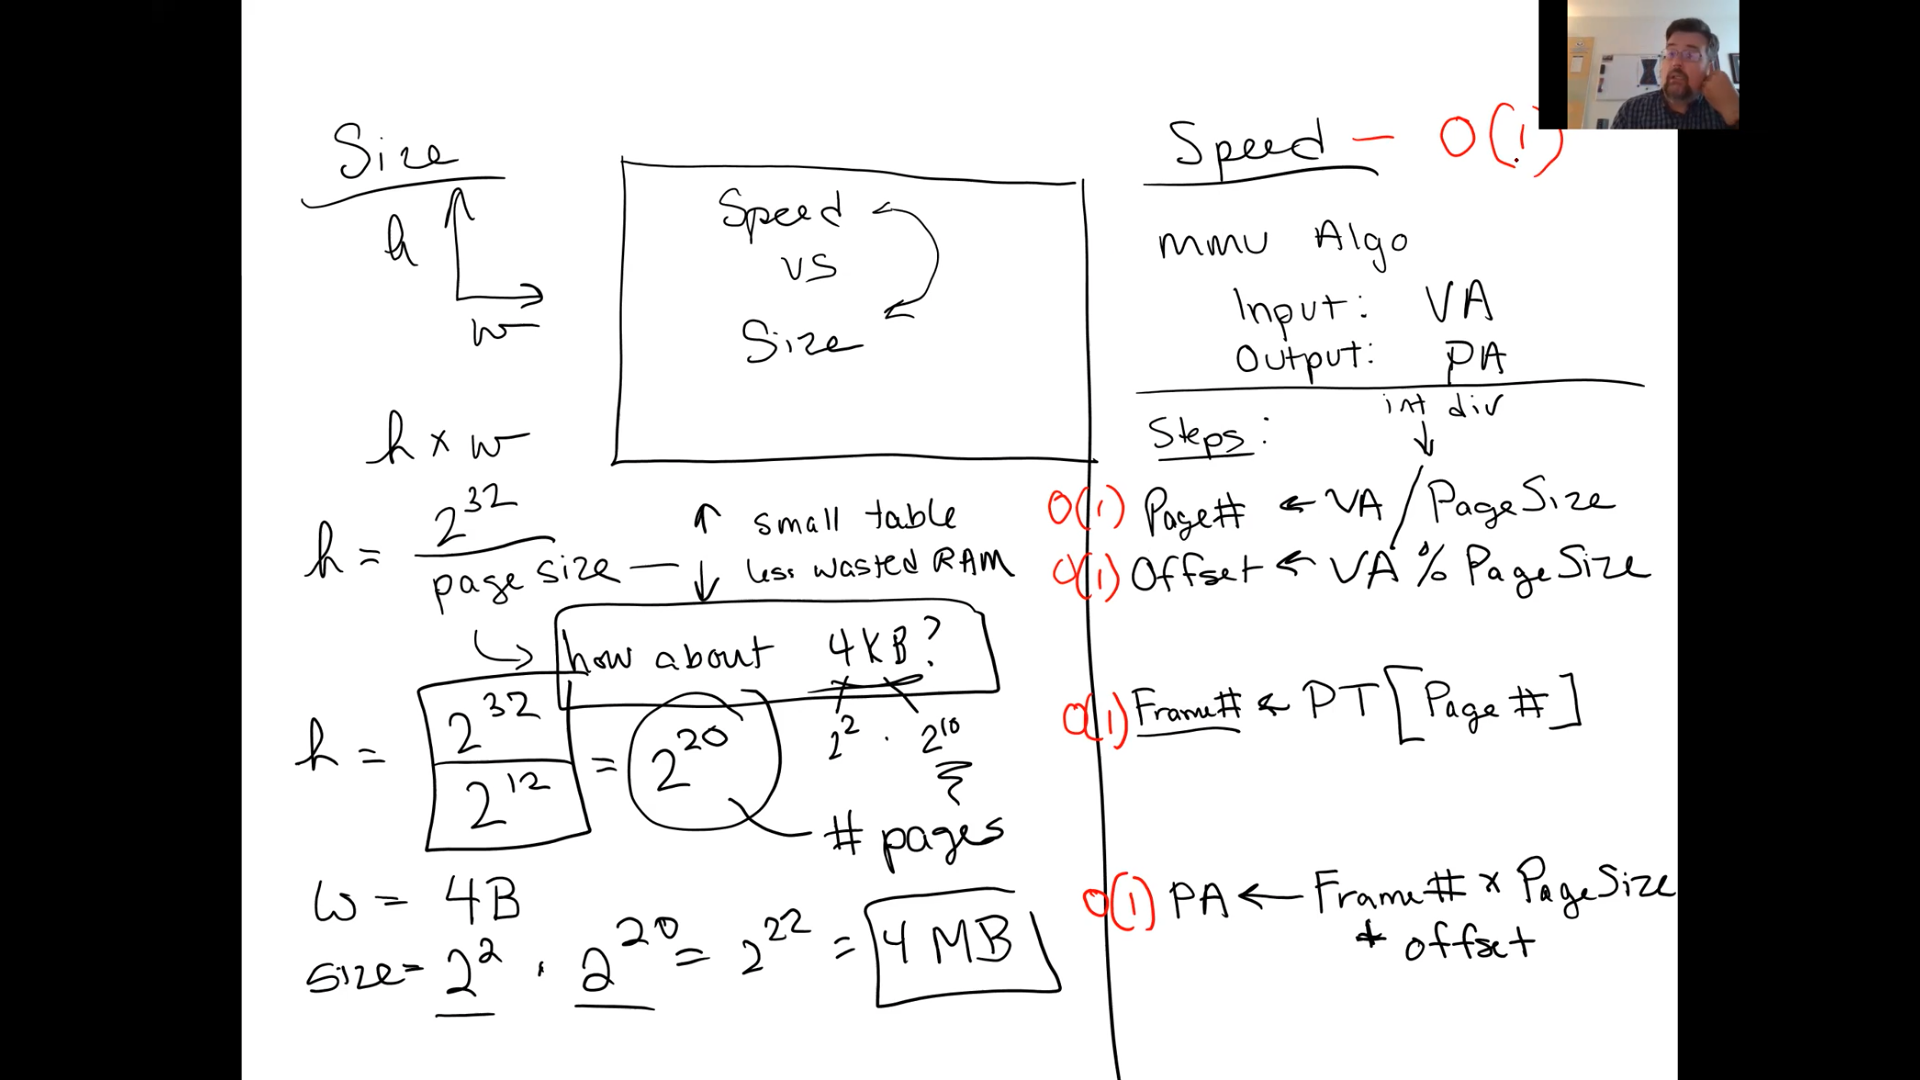 Size
h
w
h x w
h = 2^32 / page size
↑ small table
↓ less wasted RAM
how about 4KB?
2^2 · 2^10
h = 2^32 / 2^12 = 2^20
# pages
w = 4B
size = 2^2 · 2^20 = 2^22 = 4 MB
Speed
vs
Size
Speed - O(1)
mmu Algo
Input: VA
Output: PA
int div
Steps:
O(1) Page# ← VA / PageSize
O(1) Offset ← VA % PageSize
O(1) Frame# ← PT[Page #]
O(1) PA ← Frame# x PageSize
+ offset